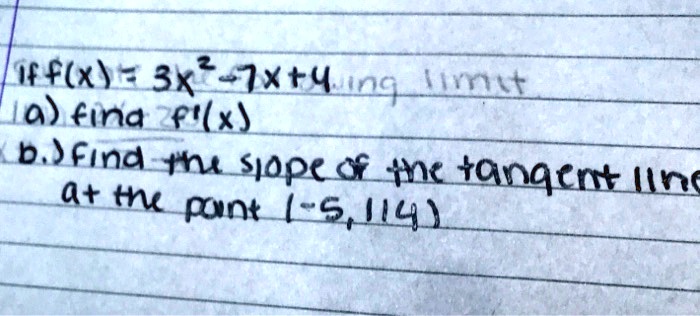 if f(x) = 3x²-7x+4 ing limit
a) find f'(x)
b.) Find the slope of the tangent line
at the point (-5, 114)